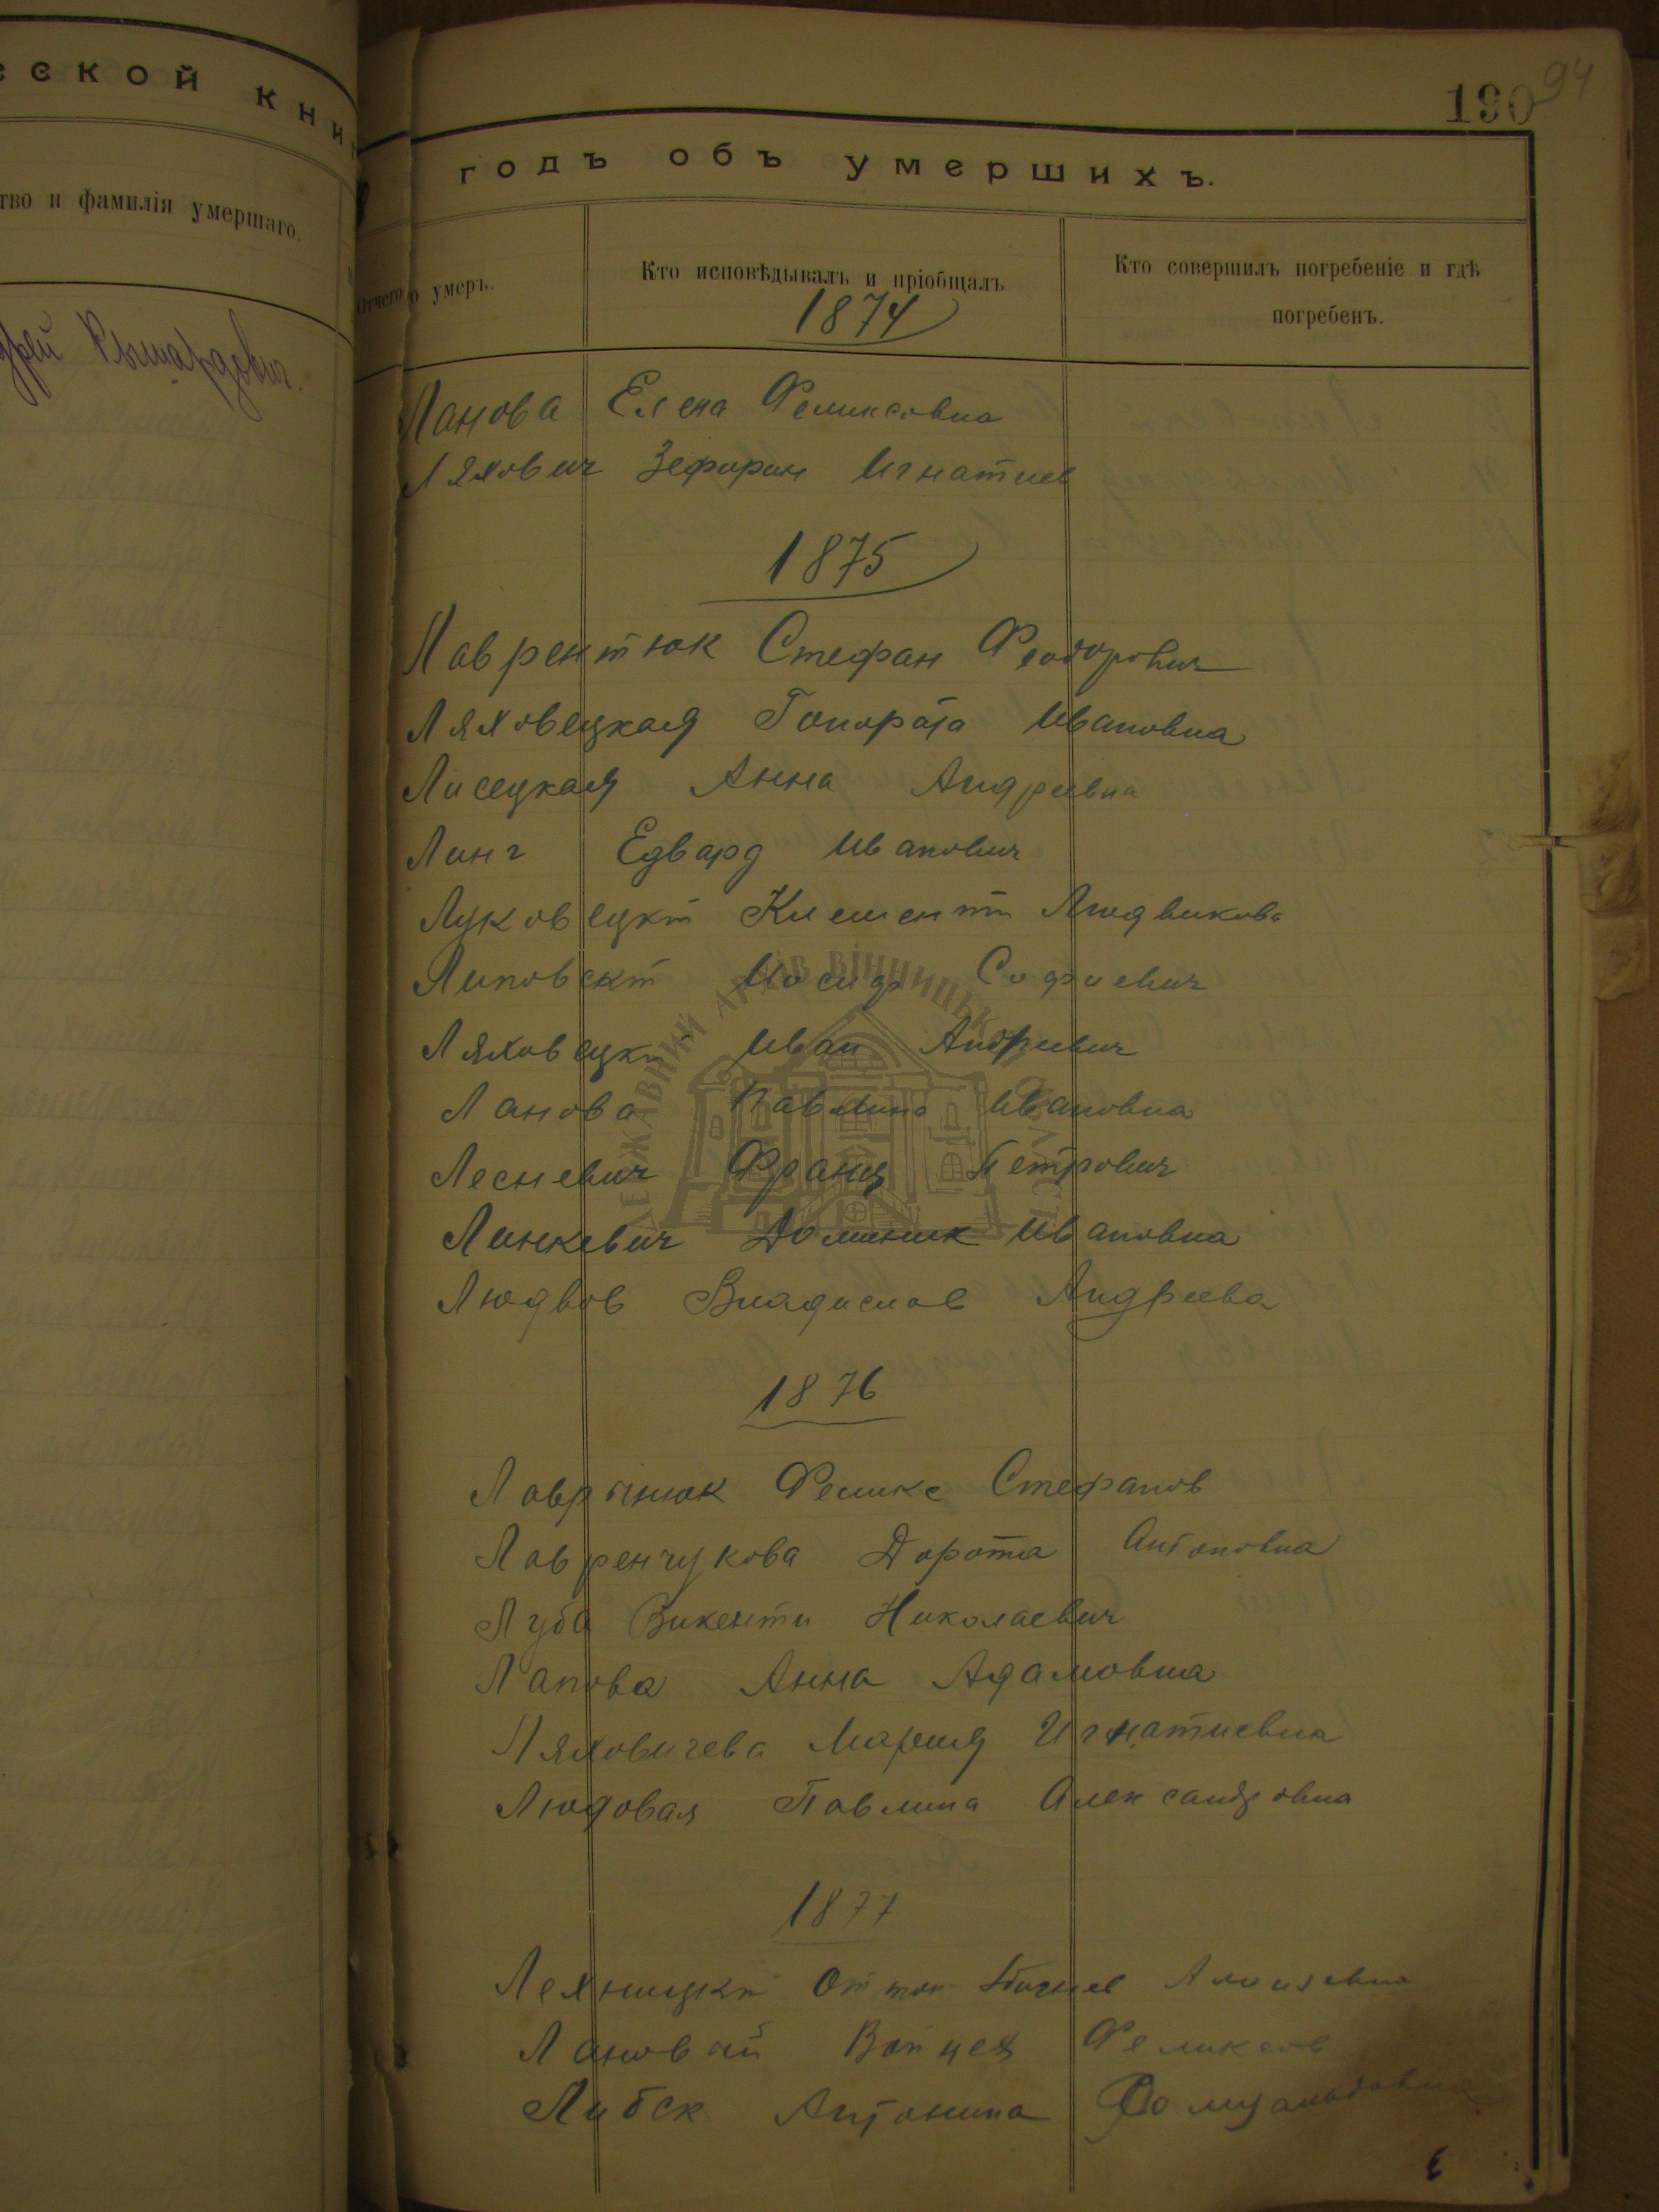 еской кни
тво и фамилія умершаго.
дрей Рышардович.
190 94
годъ объ умершихъ.
Отчего умеръ.
Кто исповѣдывалъ и пріобщалъ
Кто совершилъ погребеніе и гдѣ
погребенъ.
1874
Ланова Елена Феликсовна
Ляхович Зефирин Игнатиев
1875
Лаврентюк Стефан Феодорович
Ляховецкая Гонората Ивановна
Лисецкая Анна Андреевна
Линг Едвард Иванович
Луковецкі Клементі Людвикова
Липовскі Иосиф Софиевич
Ляховецкі Иван Андреевич
Ланова Павлина Ивановна
Лесневич Франц Петрович
Линкевич Доминик Ивановна
Людвов Владислав Андреева
1876
Лаврынюк Феликс Стефанов
Лавренчукова Дорота Антоновна
Луба Викенти Николаевич
Ланова Анна Адамовна
Ляховичева Мария Игнатиевна
Людовая Павлина Александровна
1877
Лехницкі Оттон Алоизевна
Лановай Войцех Феликсов
Либск Антонина Ромуальдовна
ДЕРЖАВНИЙ АРХІВ ВІННИЦЬКОЇ ОБЛАСТІ